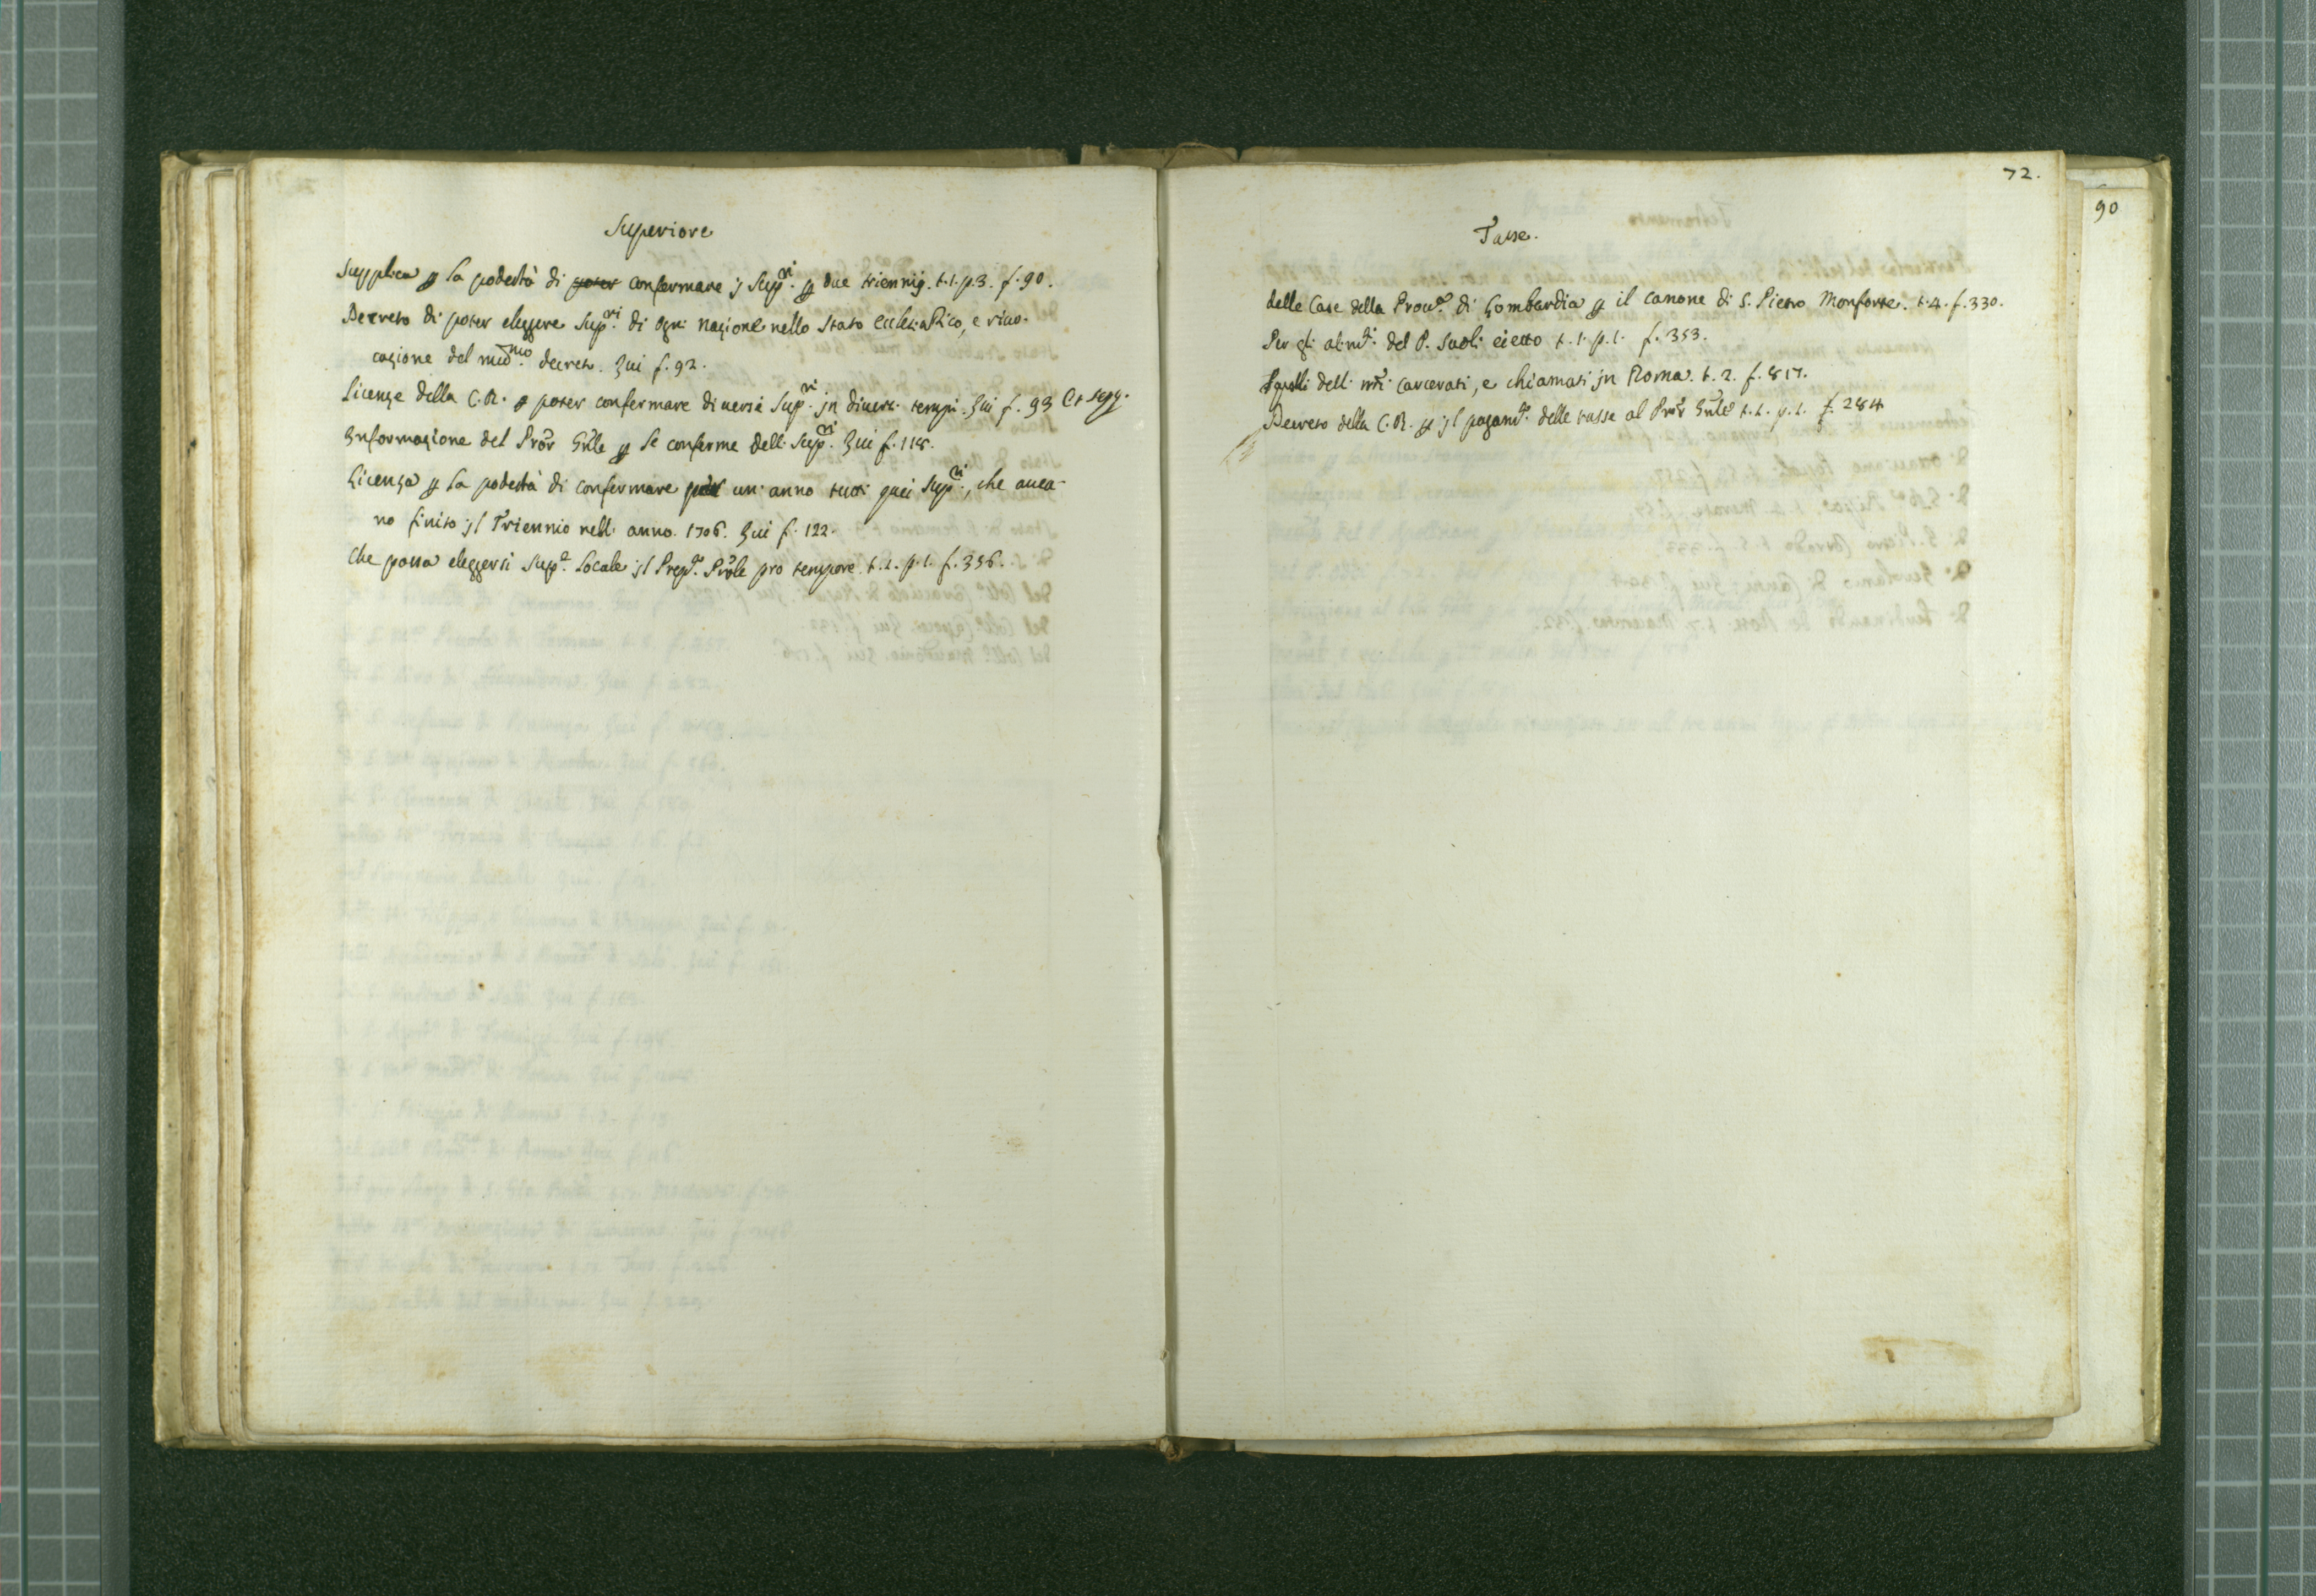 Superiore
Supplica ꝑ la podestà di poter confermare j Sup.ri ꝑ due triennij. t.1. p.3. f. 90.
Decreto di poter eleggere Sup.ri di ogni nazione nello Stato ecclesiastico, e riuo-
cazione del med.mo decreto. Qui f. 92.
Licenze della C. R. ꝑ poter confermare diuersi Sup.ri jn diuersi tempi. Qui f. 93 et seqq.
Informazione del Pror Gnle ꝑ le conferme delli Sup.ri Qui f. 118.
Licenza ꝑ la podestà di confermare un' anno tutti quei Sup.ri, che auea-
no finito jl Triennio nell' anno. 1706. Qui f. 122.
Che possa eleggersi Sup.e Locale jl Prep.to Pnle pro tempore. t.1. p.1. f. 356.
72.
90
Tasse.
delle Case della Prou.a di Lombardia ꝑ il canone di S. Pietro Monforte. t.4. f. 330.
Per gli alim.ti del P. Suoli eietto t.1. p.1. f. 353.
P quelli delli nri carcerati, e chiamati jn Roma. t. 2. f. 817.
Decreto della C. R. ꝑ jl pagam.to delle tasse al Pror Gnle t.1. p.1. f. 284